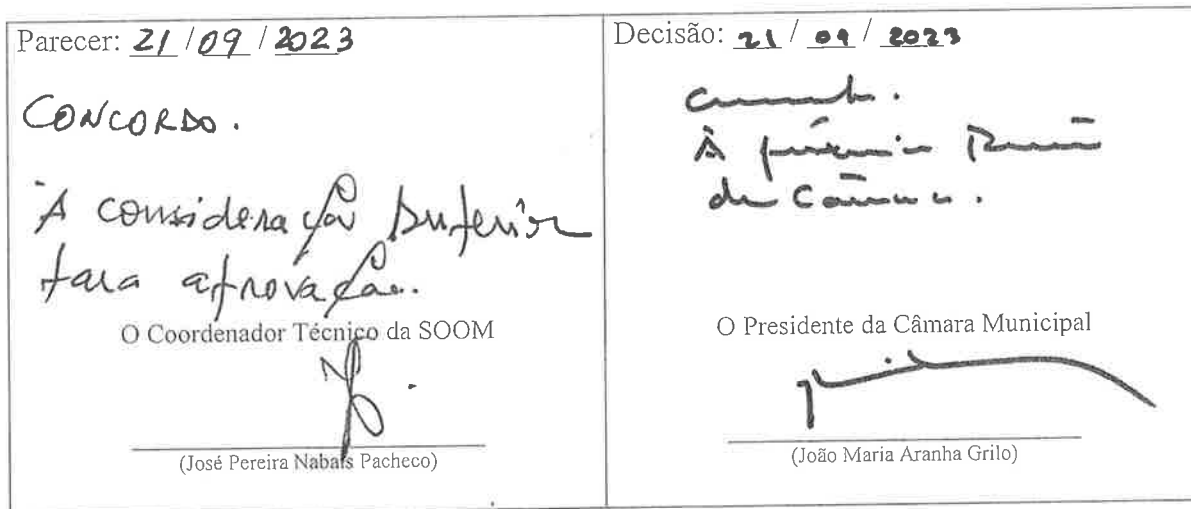 Parecer: 21 / 09 / 2023
CONCORDO.
À consideração Superior
para aprovação.
O Coordenador Técnico da SOOM
(José Pereira Nabais Pacheco)
Decisão: 21 / 09 / 2023
À próxima Reunião
de Câmara.
O Presidente da Câmara Municipal
(João Maria Aranha Grilo)